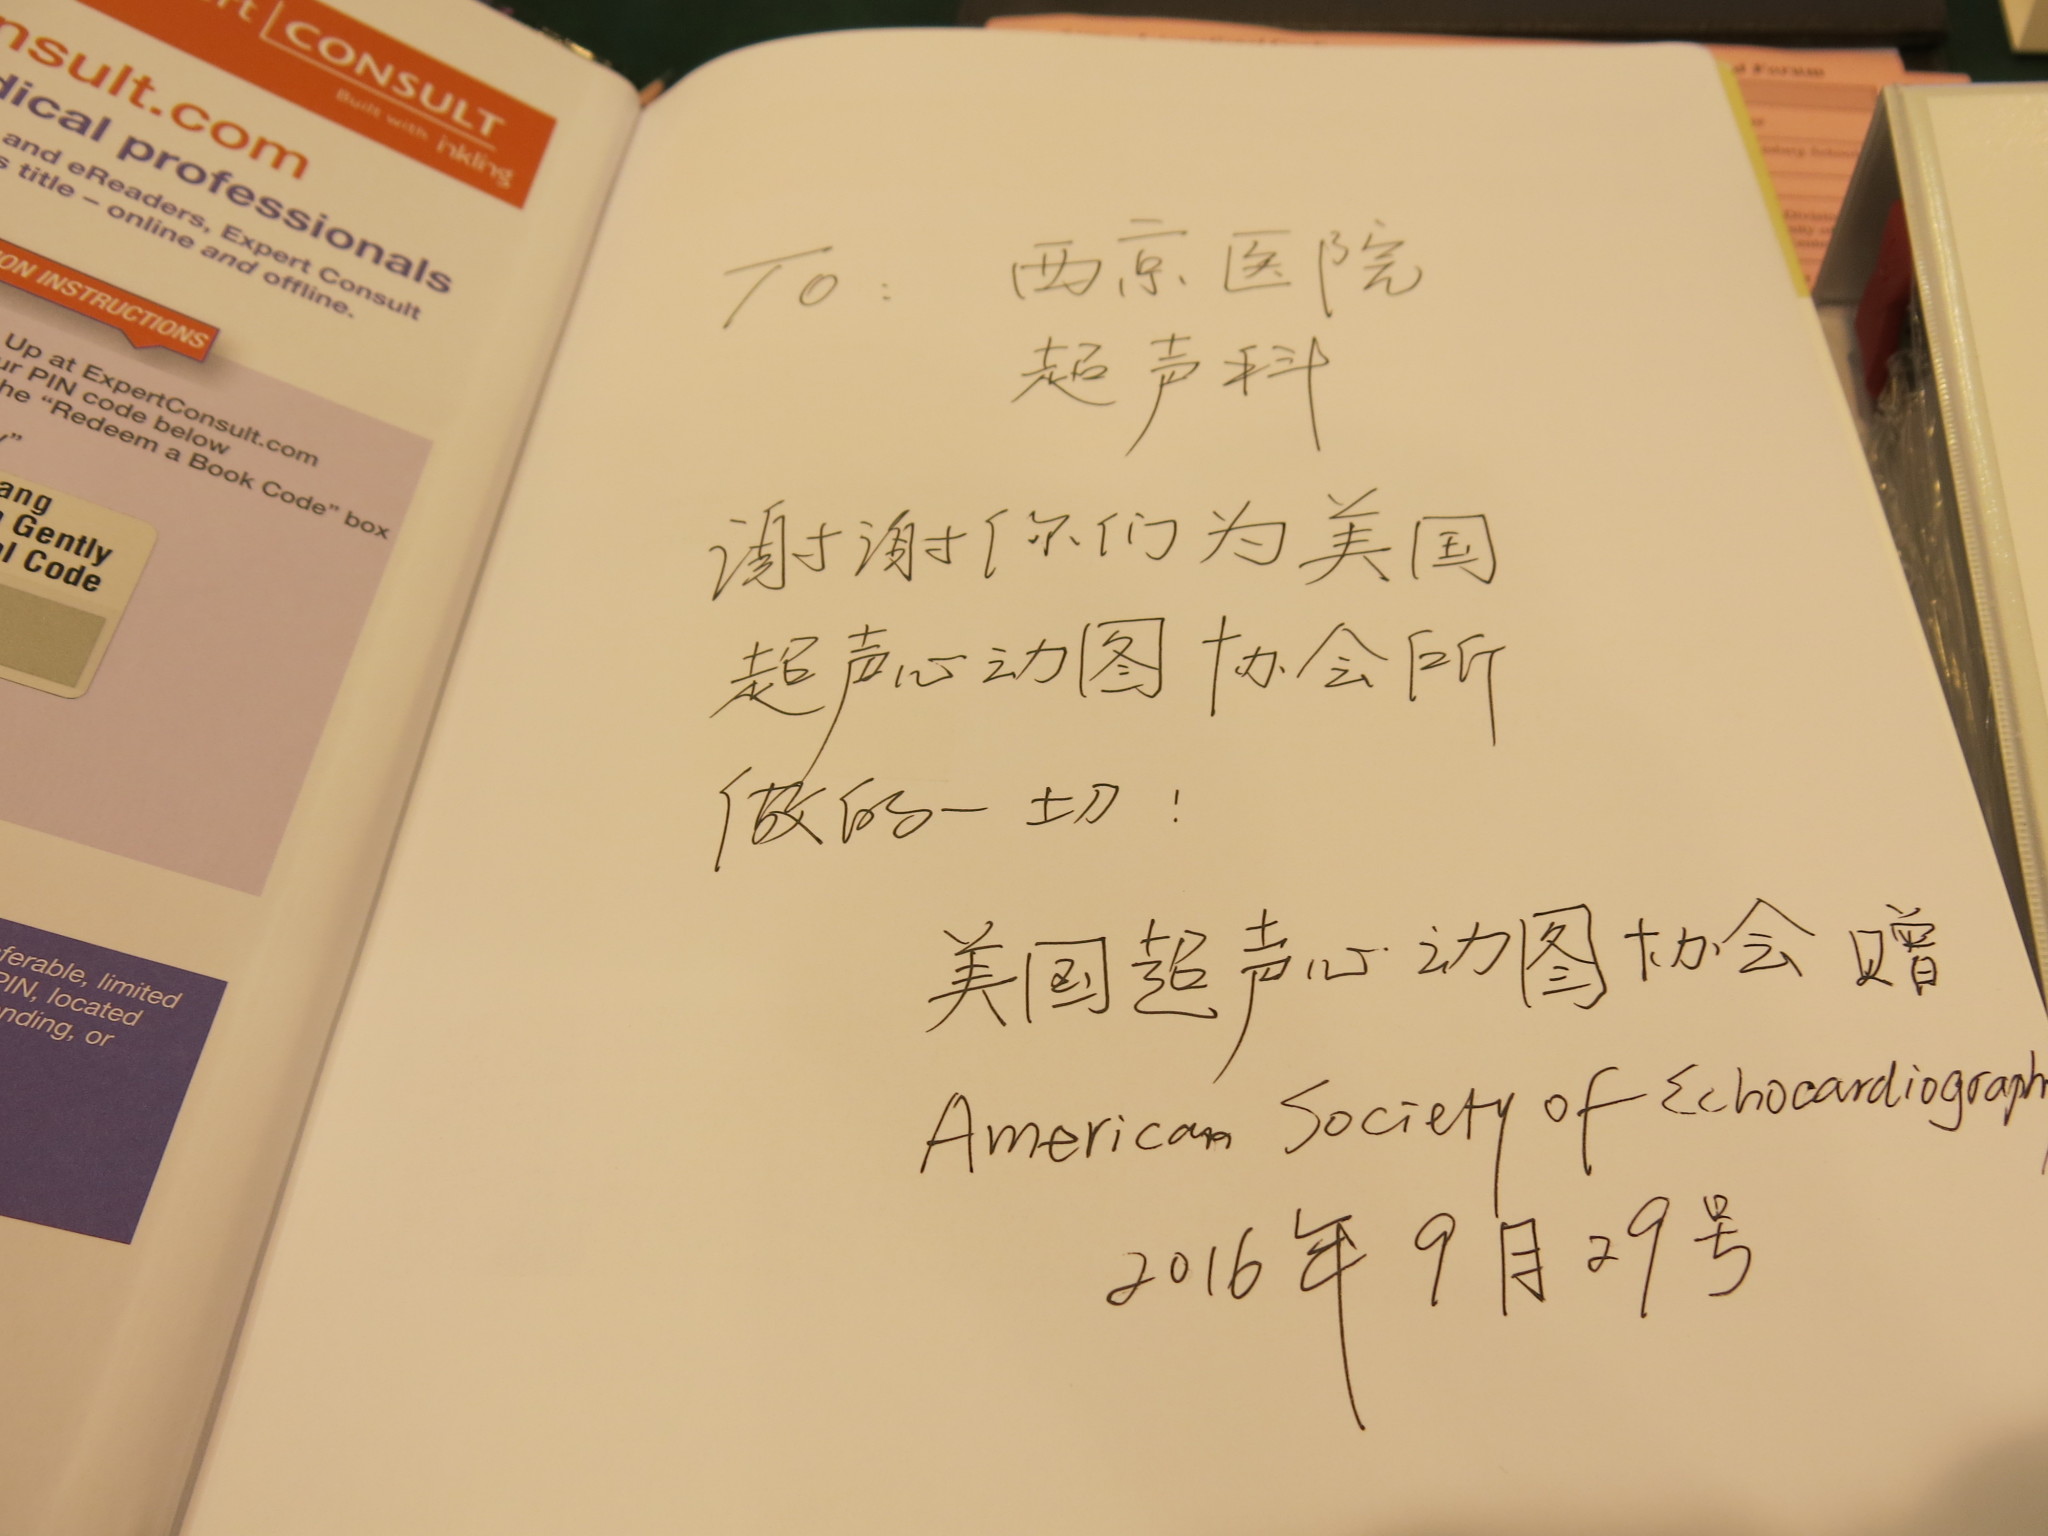 CONSULT
Built with inkling
nsult.com
dical professionals
and eReaders, Expert Consult
s title – online and offline.
ON INSTRUCTIONS
Up at ExpertConsult.com
ur PIN code below
he “Redeem a Book Code” box
ang
Gently
Code
ferable, limited
PIN, located
nding, or
To: 西京医院
超声科
谢谢你们为美国
超声心动图协会所
做的一切!
美国超声心动图协会 赠
American Society of Echocardiograph
2016年9月29号
Forum